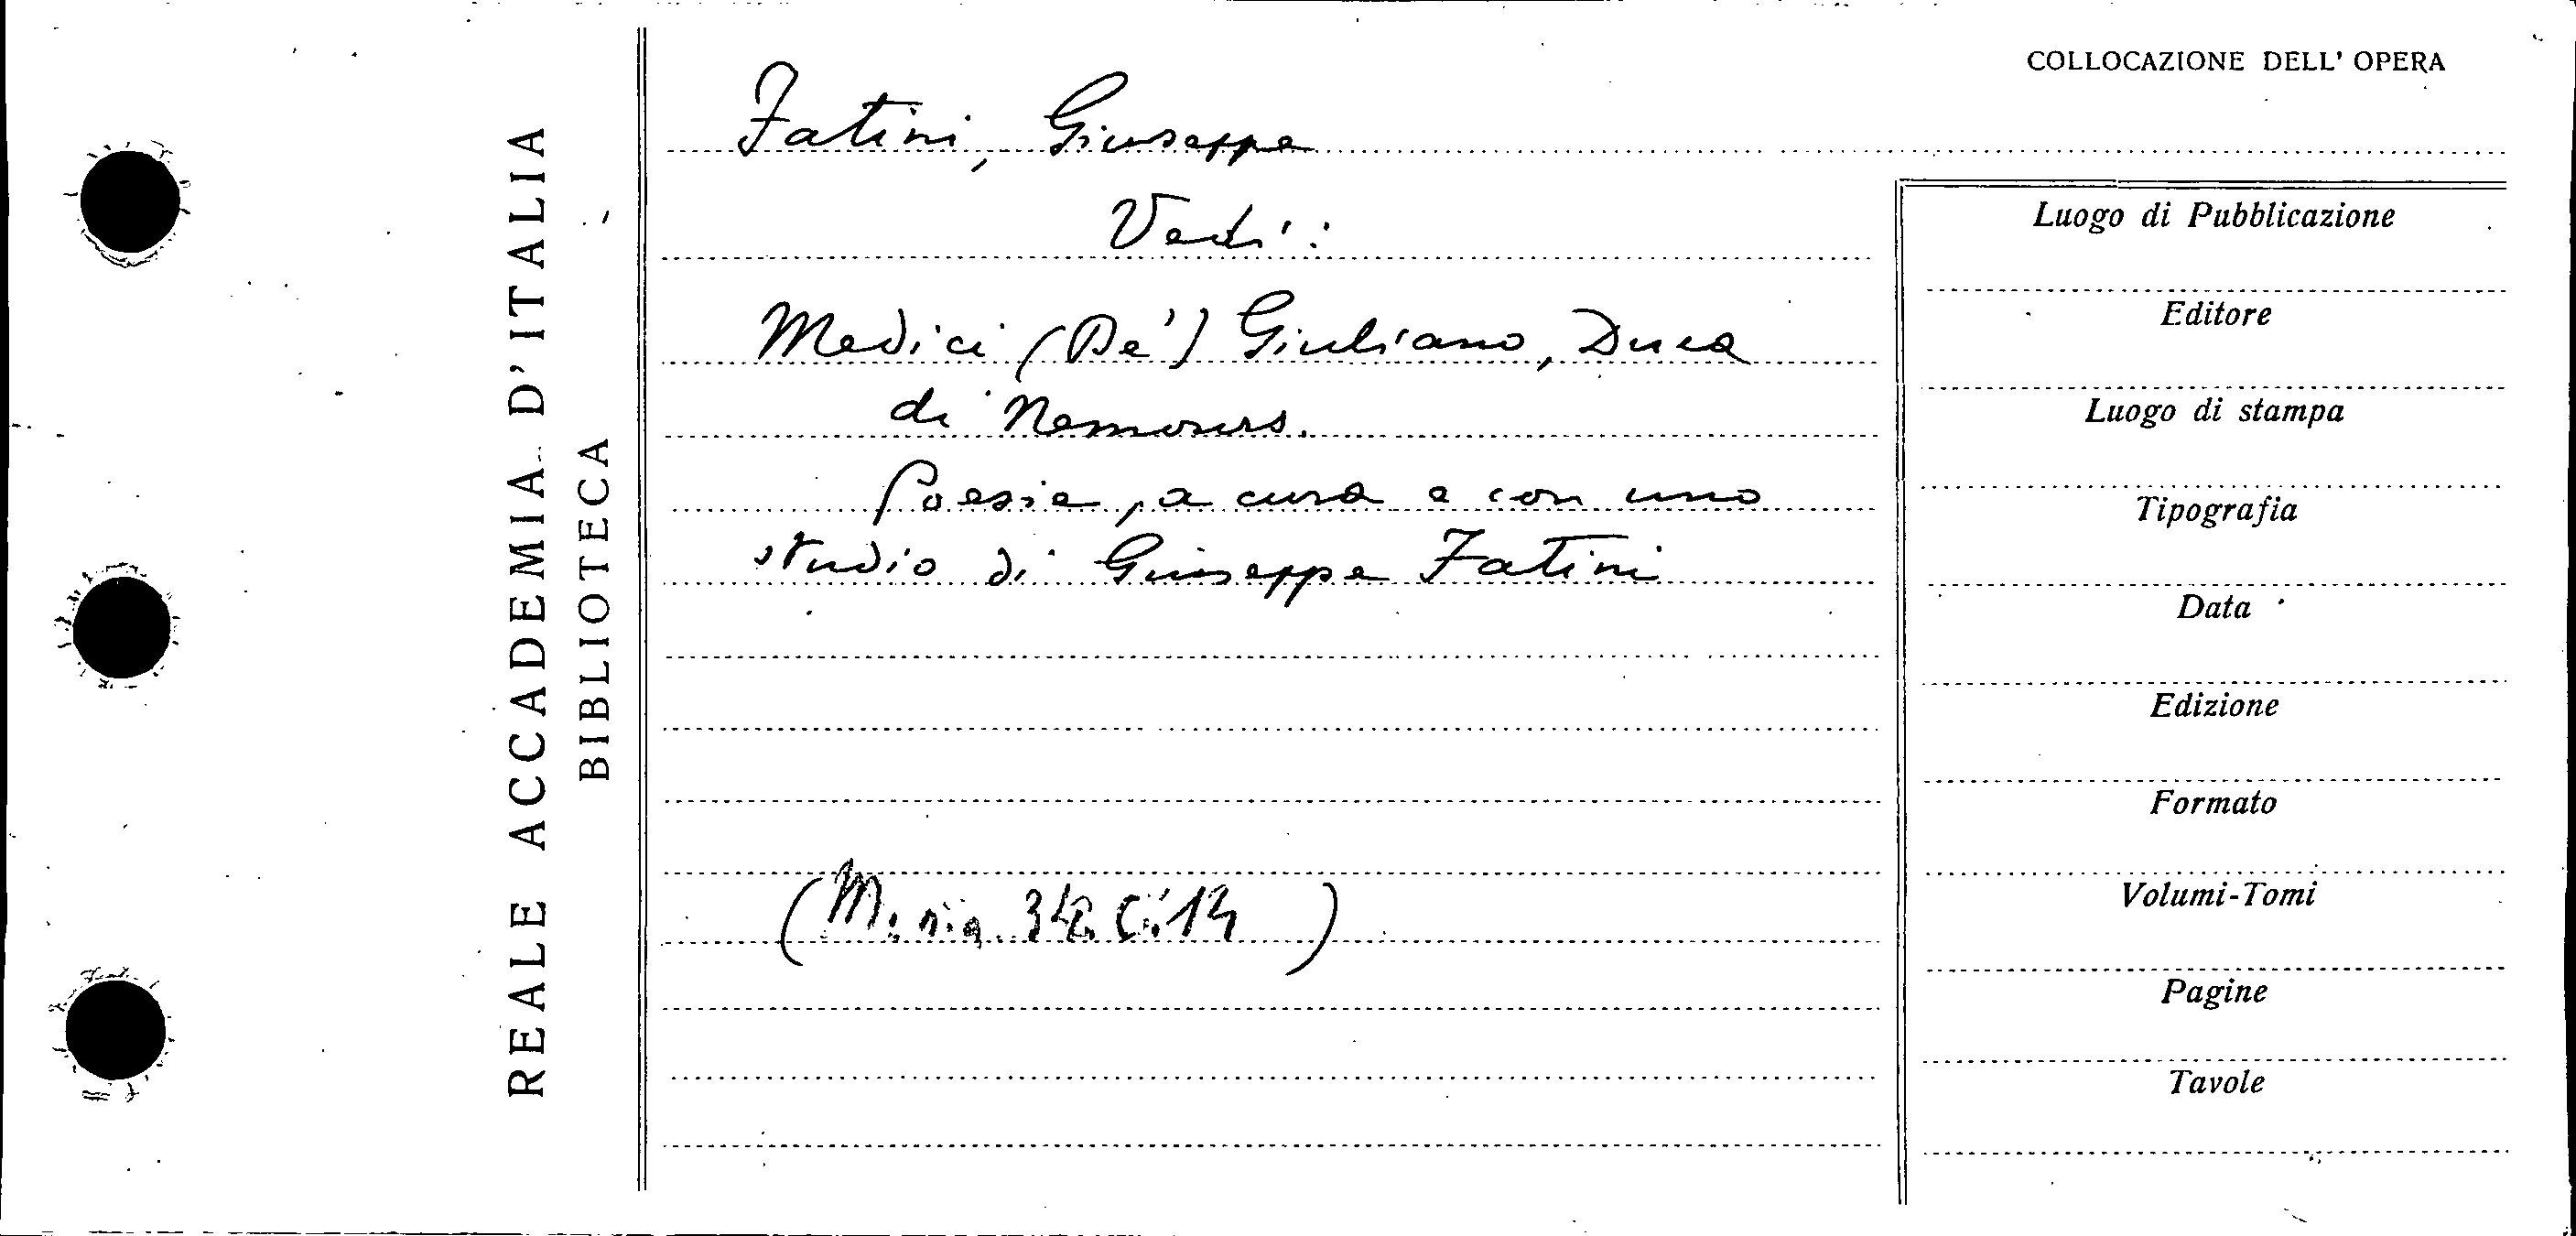 REALE ACCADEMIA D'ITALIA
BIBLIOTECA
COLLOCAZIONE DELL' OPERA
Fatini, Giuseppe
Vedi:
Medici (De') Giuliano, Duca
di Nemours.
Poesie, a cura e con uno
studio di Giuseppe Fatini
Luogo di Pubblicazione
Editore
Luogo di stampa
Tipografia
Data
Edizione
Formato
Volumi-Tomi
Pagine
Tavole